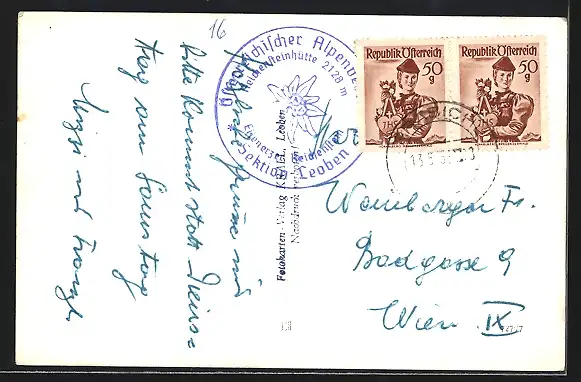 16
Österreichischer Alpenverein
Reichensteinhütte 2128 m
Eisenerzer Reichenstein
Sektion Leoben
Republik Österreich
50
g
Republik Österreich
50
g
bitte kommt statt Diens=
tag am Samstag
Mizzi und Franzl
Fotokarten-Verlag
Leoben
Nachdruck verboten
Wamberger Fr.
Badgasse 9
Wien IX